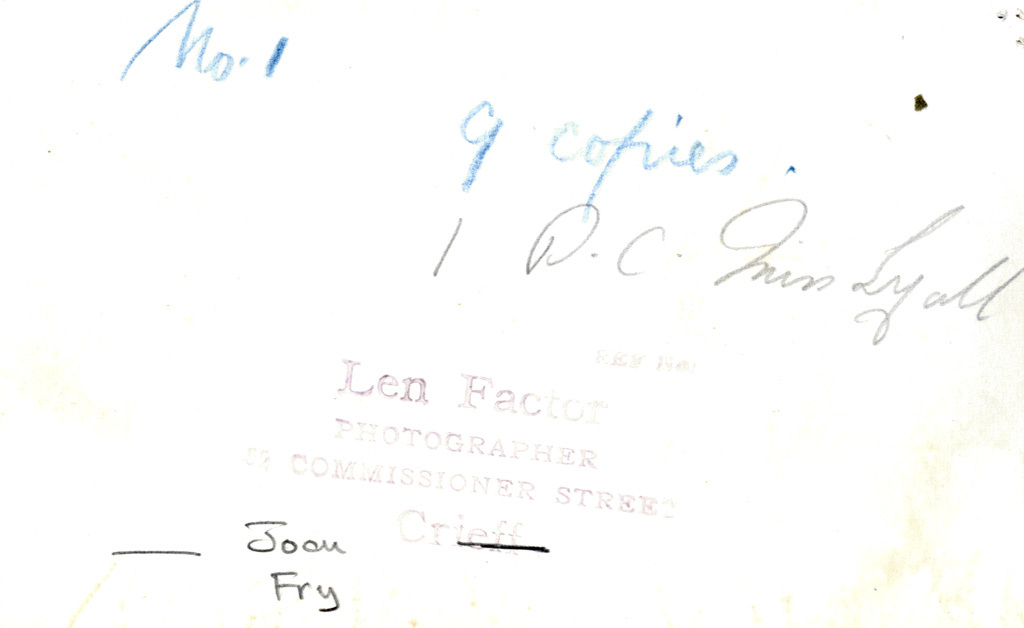 No. 1
9 copies.
1 P.C. Miss Lyall
REF No
Len Factor
PHOTOGRAPHER
COMMISSIONER STREET
Crieff
Joan
Fry